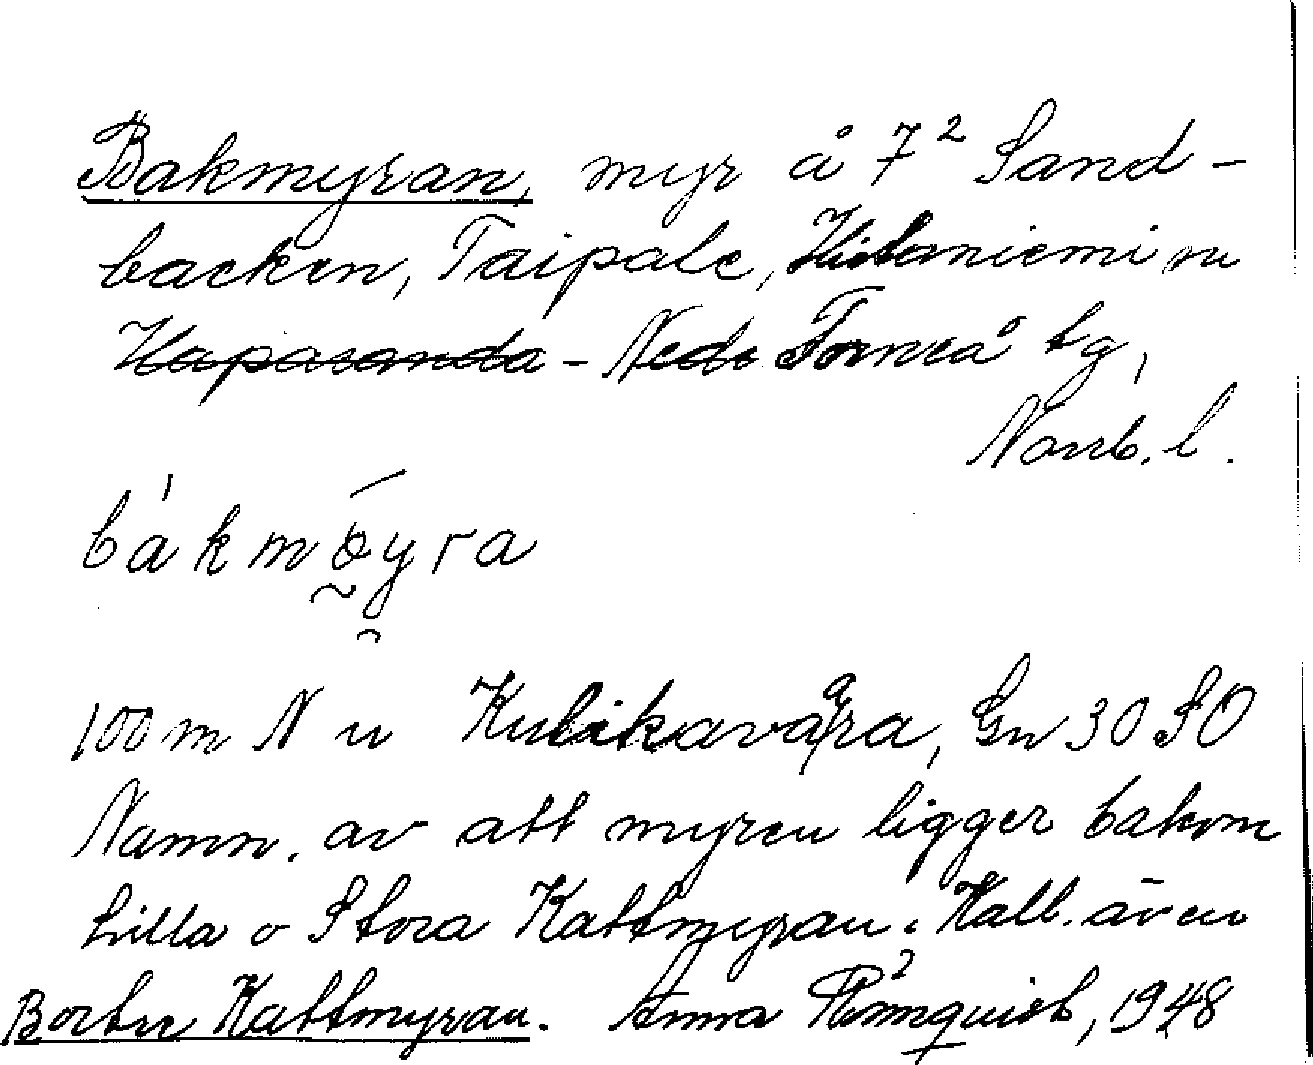 Bakmyran, myr å 7² Sand-
backen, Taipale, sn
Haparanda - Neder Torneå tg,
Norrb. l.
bakmöyra
100 m N u Kulikavaara, Gn 30 SO
Namn. av att myren ligger bakom
Lilla o Stora Kattmyran. Kall. även
Bortre Kattmyran. Anna Rönnquist, 1948